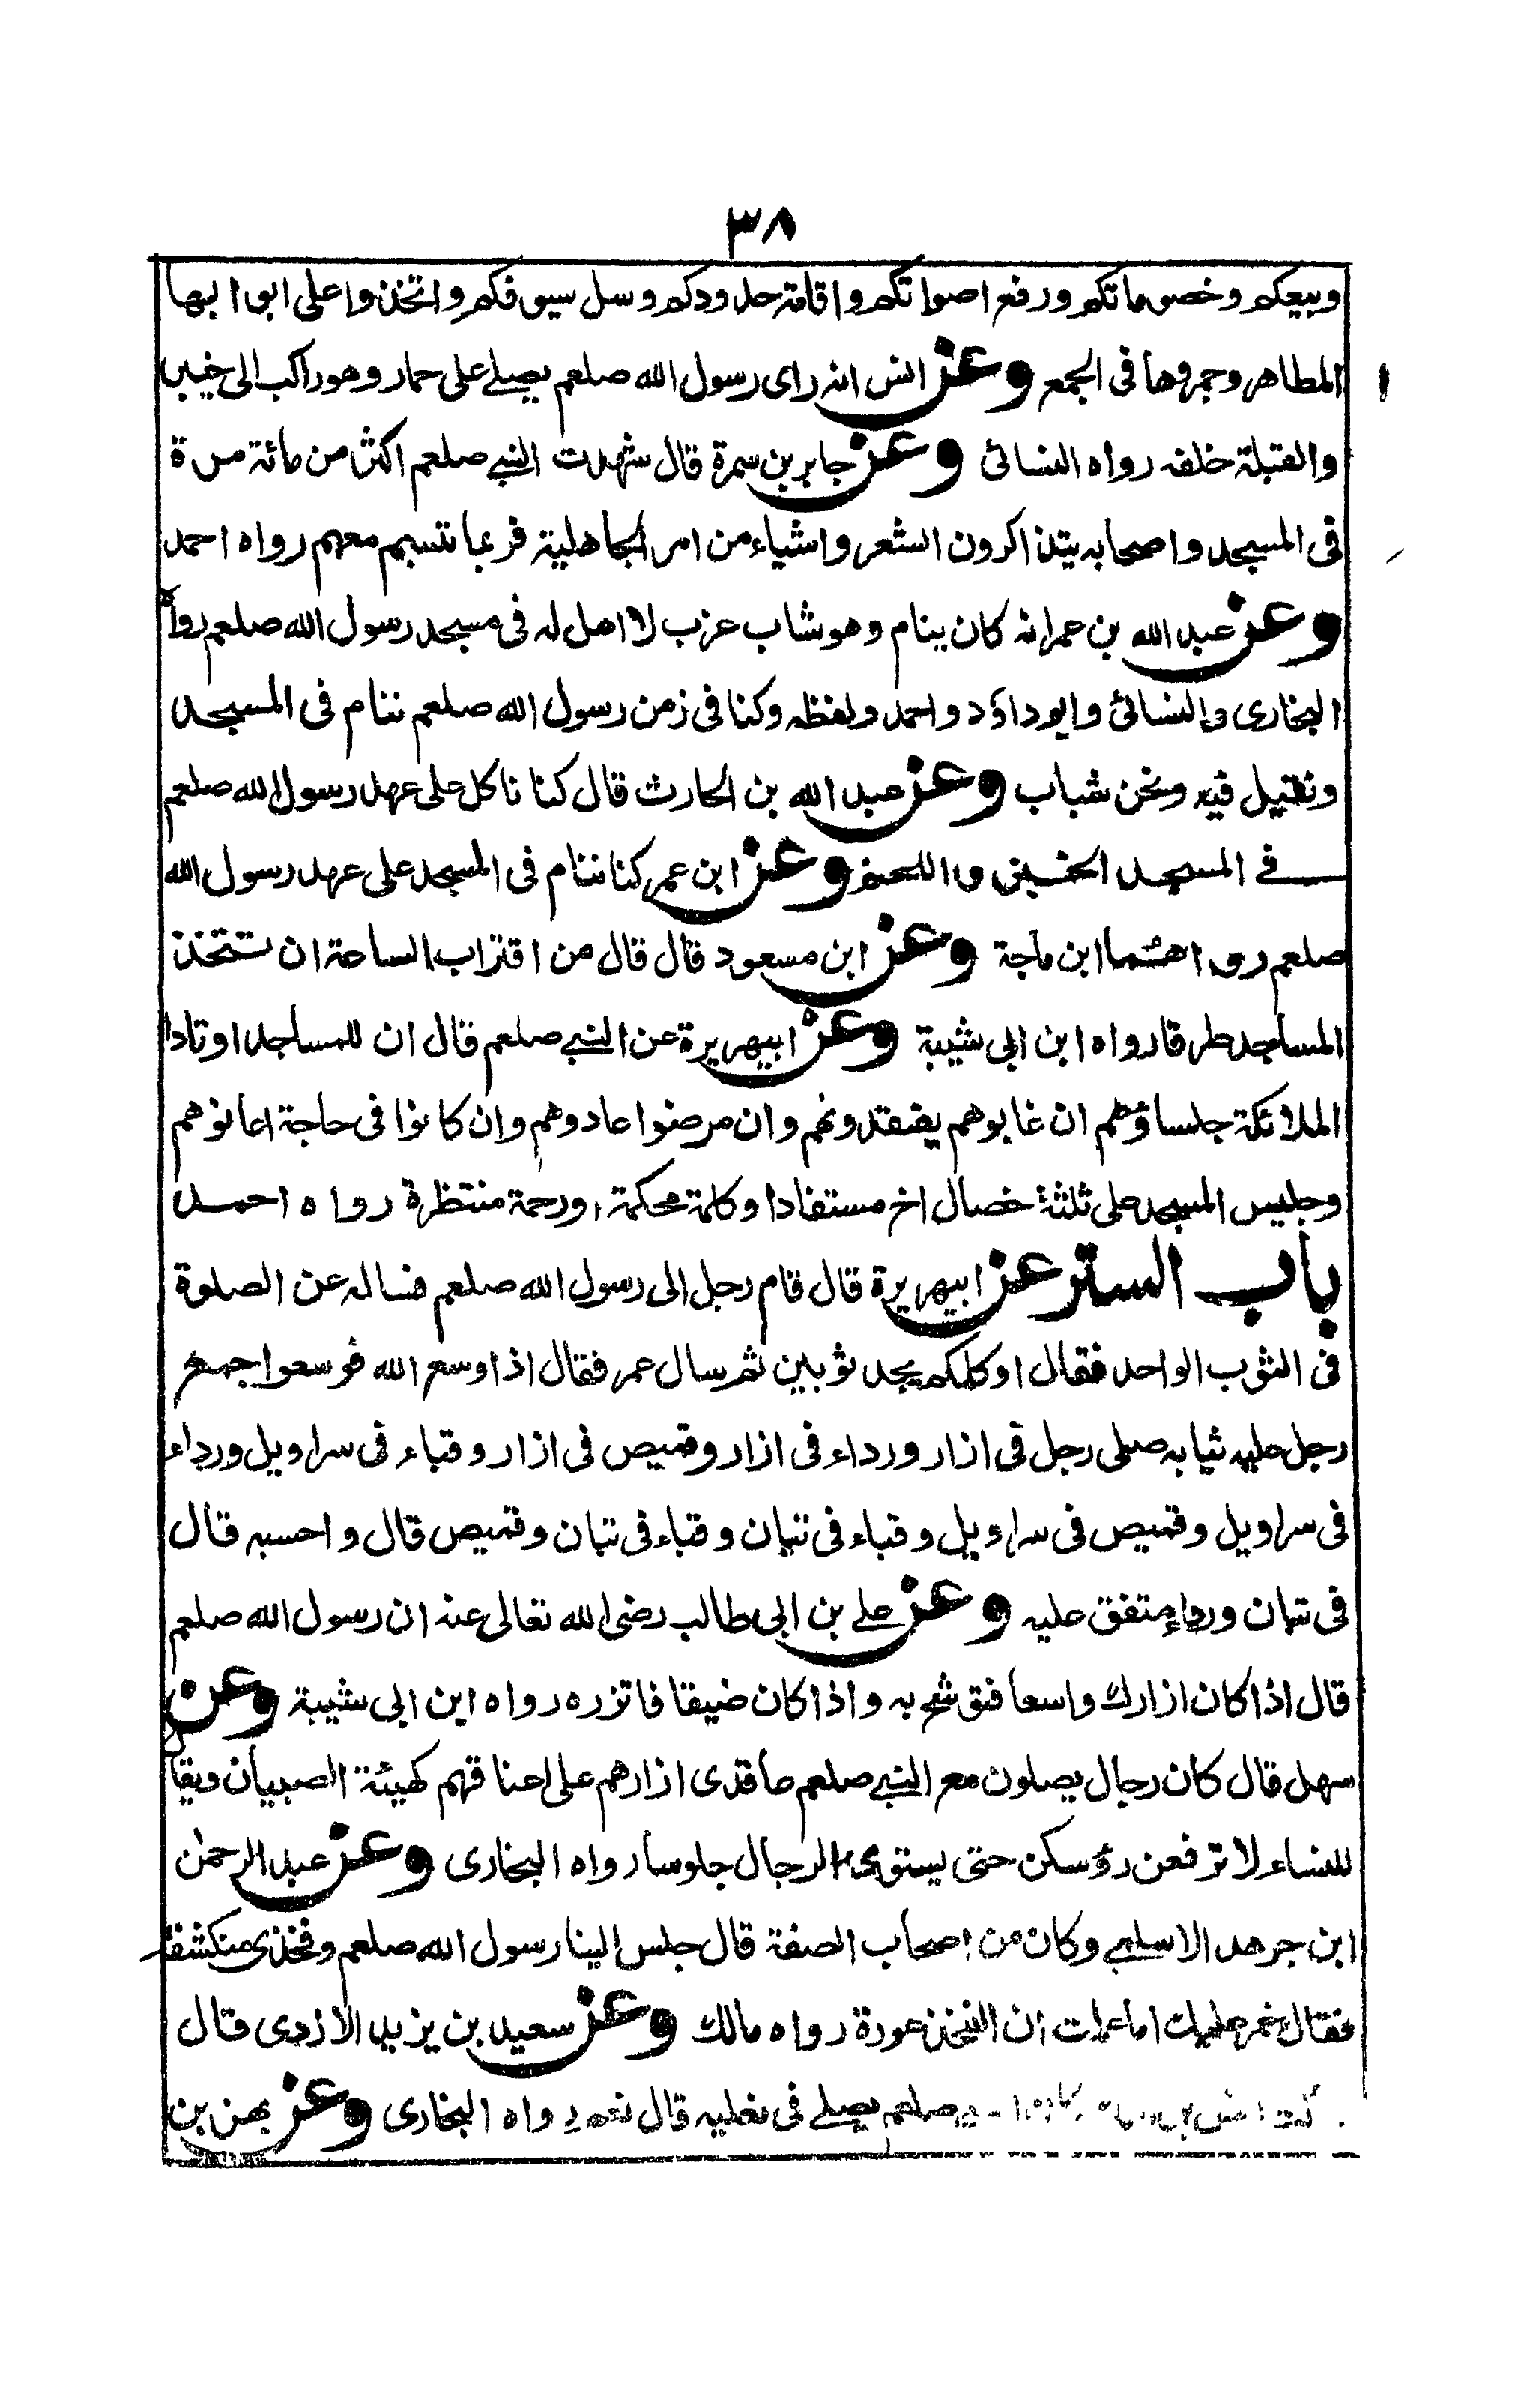 ٣٨
وبيعكم وخصوماتكم ورفع اصواتكم واقامة حدودكم وسل سيوفكم واتخذوا على ابوابها
المطاهر وجمروها فى الجمع وعن انس انه راى رسول الله صلعم يصلے على حمار وهو راكب الى خيبر
والقبلة خلفه رواه النسائى وعن جابر بن سمرة قال شهدت النبے صلعم اكثر من مائة مرة
فى المسجد واصحابه يتذاكرون الشعر واشياء من امر الجاهلية فربما تبسم معهم رواه احمد
وعن عبد الله بن عمر انه كان ينام وهو شاب عزب لا اهل له فى مسجد رسول الله صلعم رواه
البخارى والنسائى وابو داؤد واحمد ولفظه وكنا فى زمن رسول الله صلعم ننام فى المسجد
ونقيل فيه ونحن شباب وعن عبد الله بن الحارث قال كنا ناكل على عهد رسول الله صلعم
فے المسجد الخبز واللحم وعن ابن عمر كنا ننام فى المسجد على عهد رسول الله
صلعم رواهما ابن ماجة وعن ابن مسعود قال قال من اقتراب الساعة ان تتخذ
المساجد طرقا رواه ابن ابى شيبة وعن ابيهريرة عن النبے صلعم قال ان للمساجد اوتادا
الملائكة جلساؤهم ان غابوهم يفتقدونهم وان مرضوا عادوهم وان كانوا فى حاجة اعانوهم
وجليس المسجد على ثلثة خصال اخ مستفادا وكلمة محكمة اورحمة منتظرة رواه احمد
باب الستر عن ابيهريرة قال قام رجل الى رسول الله صلعم فساله عن الصلوة
فى الثوب الواحد فقال اوكلكم يجد ثوبين ثم سال عمر فقال اذا وسع الله فوسعوا جمع
رجل عليه ثيابه صلى رجل فى ازار ورداء فى ازار وقميص فى ازار وقباء فى سراويل ورداء
فى سراويل وقميص فى سراويل وقباء فى تبان وقباء فى تبان وقميص قال واحسبه قال
فى تبان ورداء متفق عليه وعن علے بن ابى طالب رضى الله تعالى عنه ان رسول الله صلعم
قال اذا كان ازارك واسعا فتوشح به واذا كان ضيقا فاتزره رواه ابن ابى شيبة وعن
سهل قال كان رجال يصلون مع النبے صلعم عاقدى ازارهم على اعناقهم كهيئة الصبيان ويقال
للنساء لا ترفعن رؤسكن حتى يستوى الرجال جلوسا رواه البخارى وعن عبد الرحمن
ابن جرهد الاسلمے وكان من اصحاب الصفة قال جلس الينا رسول الله صلعم وفخذى منكشفة
فقال خمر عليك اما علمت ان الفخذ عورة رواه مالك وعن سعيد بن يزيد الازدى قال
صلعم يصلے فى نعليه قال نعم رواه البخارى وعن بهز بن